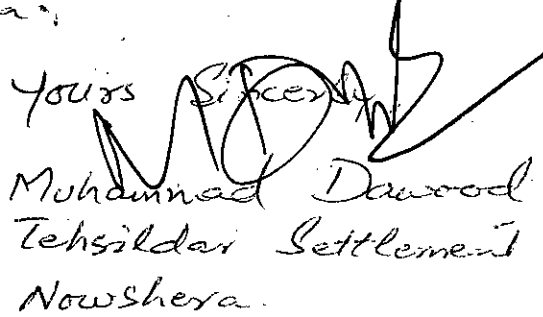 Yours Sincerely
Muhammad Dawood
Tehsildar Settlement
Nowshera.